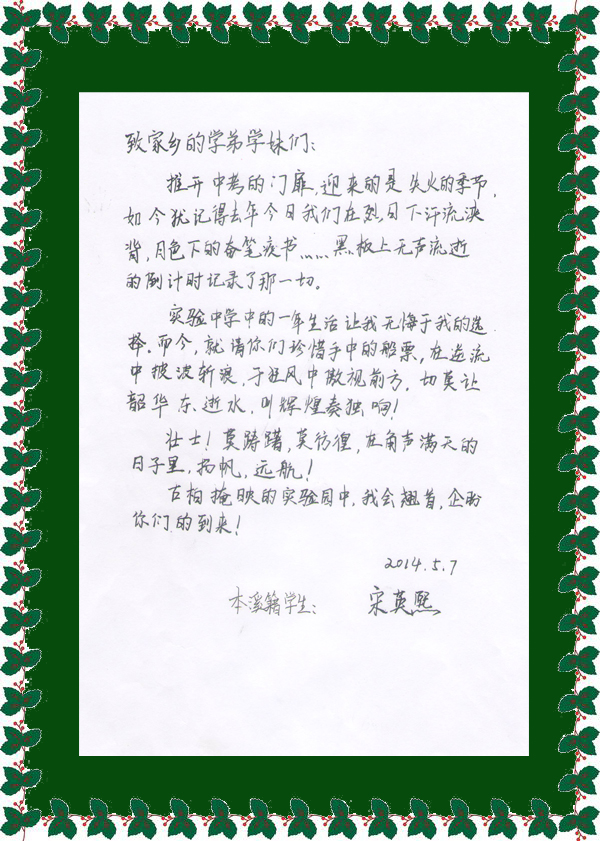 致家乡的学弟学妹们：
推开中考的门扉，迎来的是失火的季节，
如今犹记得去年今日我们在烈日下汗流浃
背，月色下的奋笔疾书……黑板上无声流逝
的倒计时记录了那一切。
实验中学中的一年生活让我无悔于我的选
择。而今，就请你们珍惜手中的船票，在逆流
中披波斩浪，于狂风中傲视前方，切莫让
韶华东逝水，叫辉煌奏独响！
壮士！莫踌躇，莫彷徨，在角声满天的
日子里，扬帆，远航！
古柏掩映的实验园中，我会翘首，企盼
你们的到来！
2014.5.7
本溪籍学生： 宋英熙